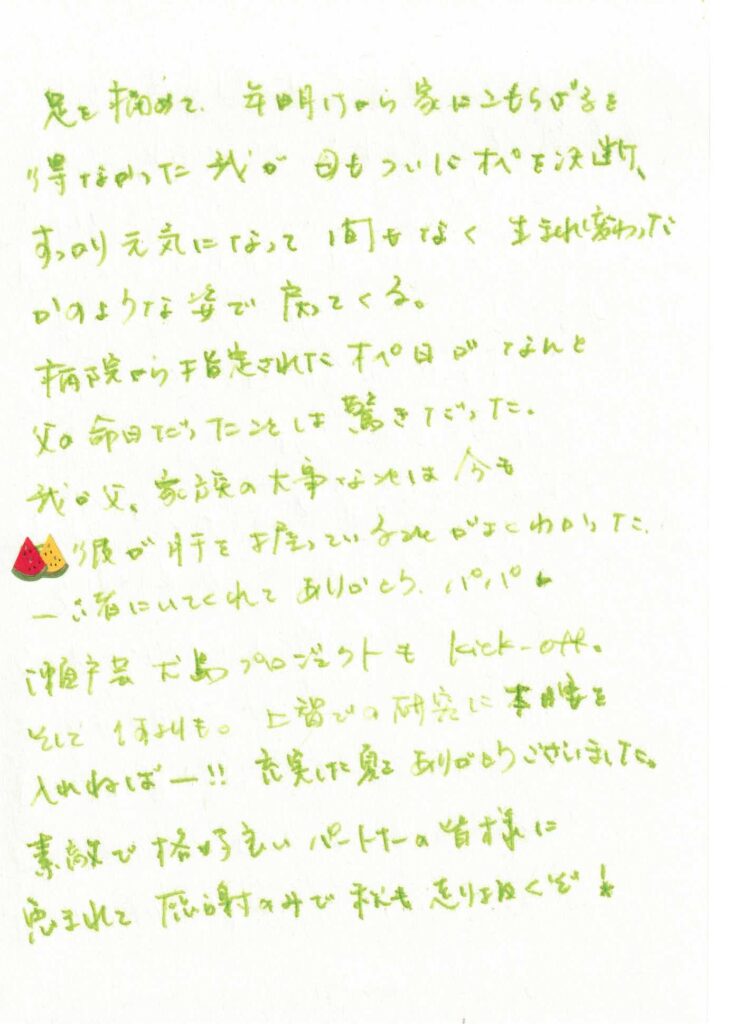 足を痛めて、年明けから家にこもらざるを
得なかった我が母もついにオペを決断、
すっかり元気になって間もなく生まれ変わった
かのような姿で戻ってくる。
病院から指定されたオペ日がなんと
父の命日だったことは驚きだった。
我が父、家族の大事なことは今も
彼が肝を握っていることがよくわかった。
一緒にいてくれてありがとう、パパ
瀬戸芸犬島プロジェクトもkick-off。
そして何よりも。上智での研究に本腰を
入れねばー!! 充実した夏をありがとうございました。
素敵で格好良いパートナーの皆様に
恵まれて感謝のみで秋も走り抜くぞ!